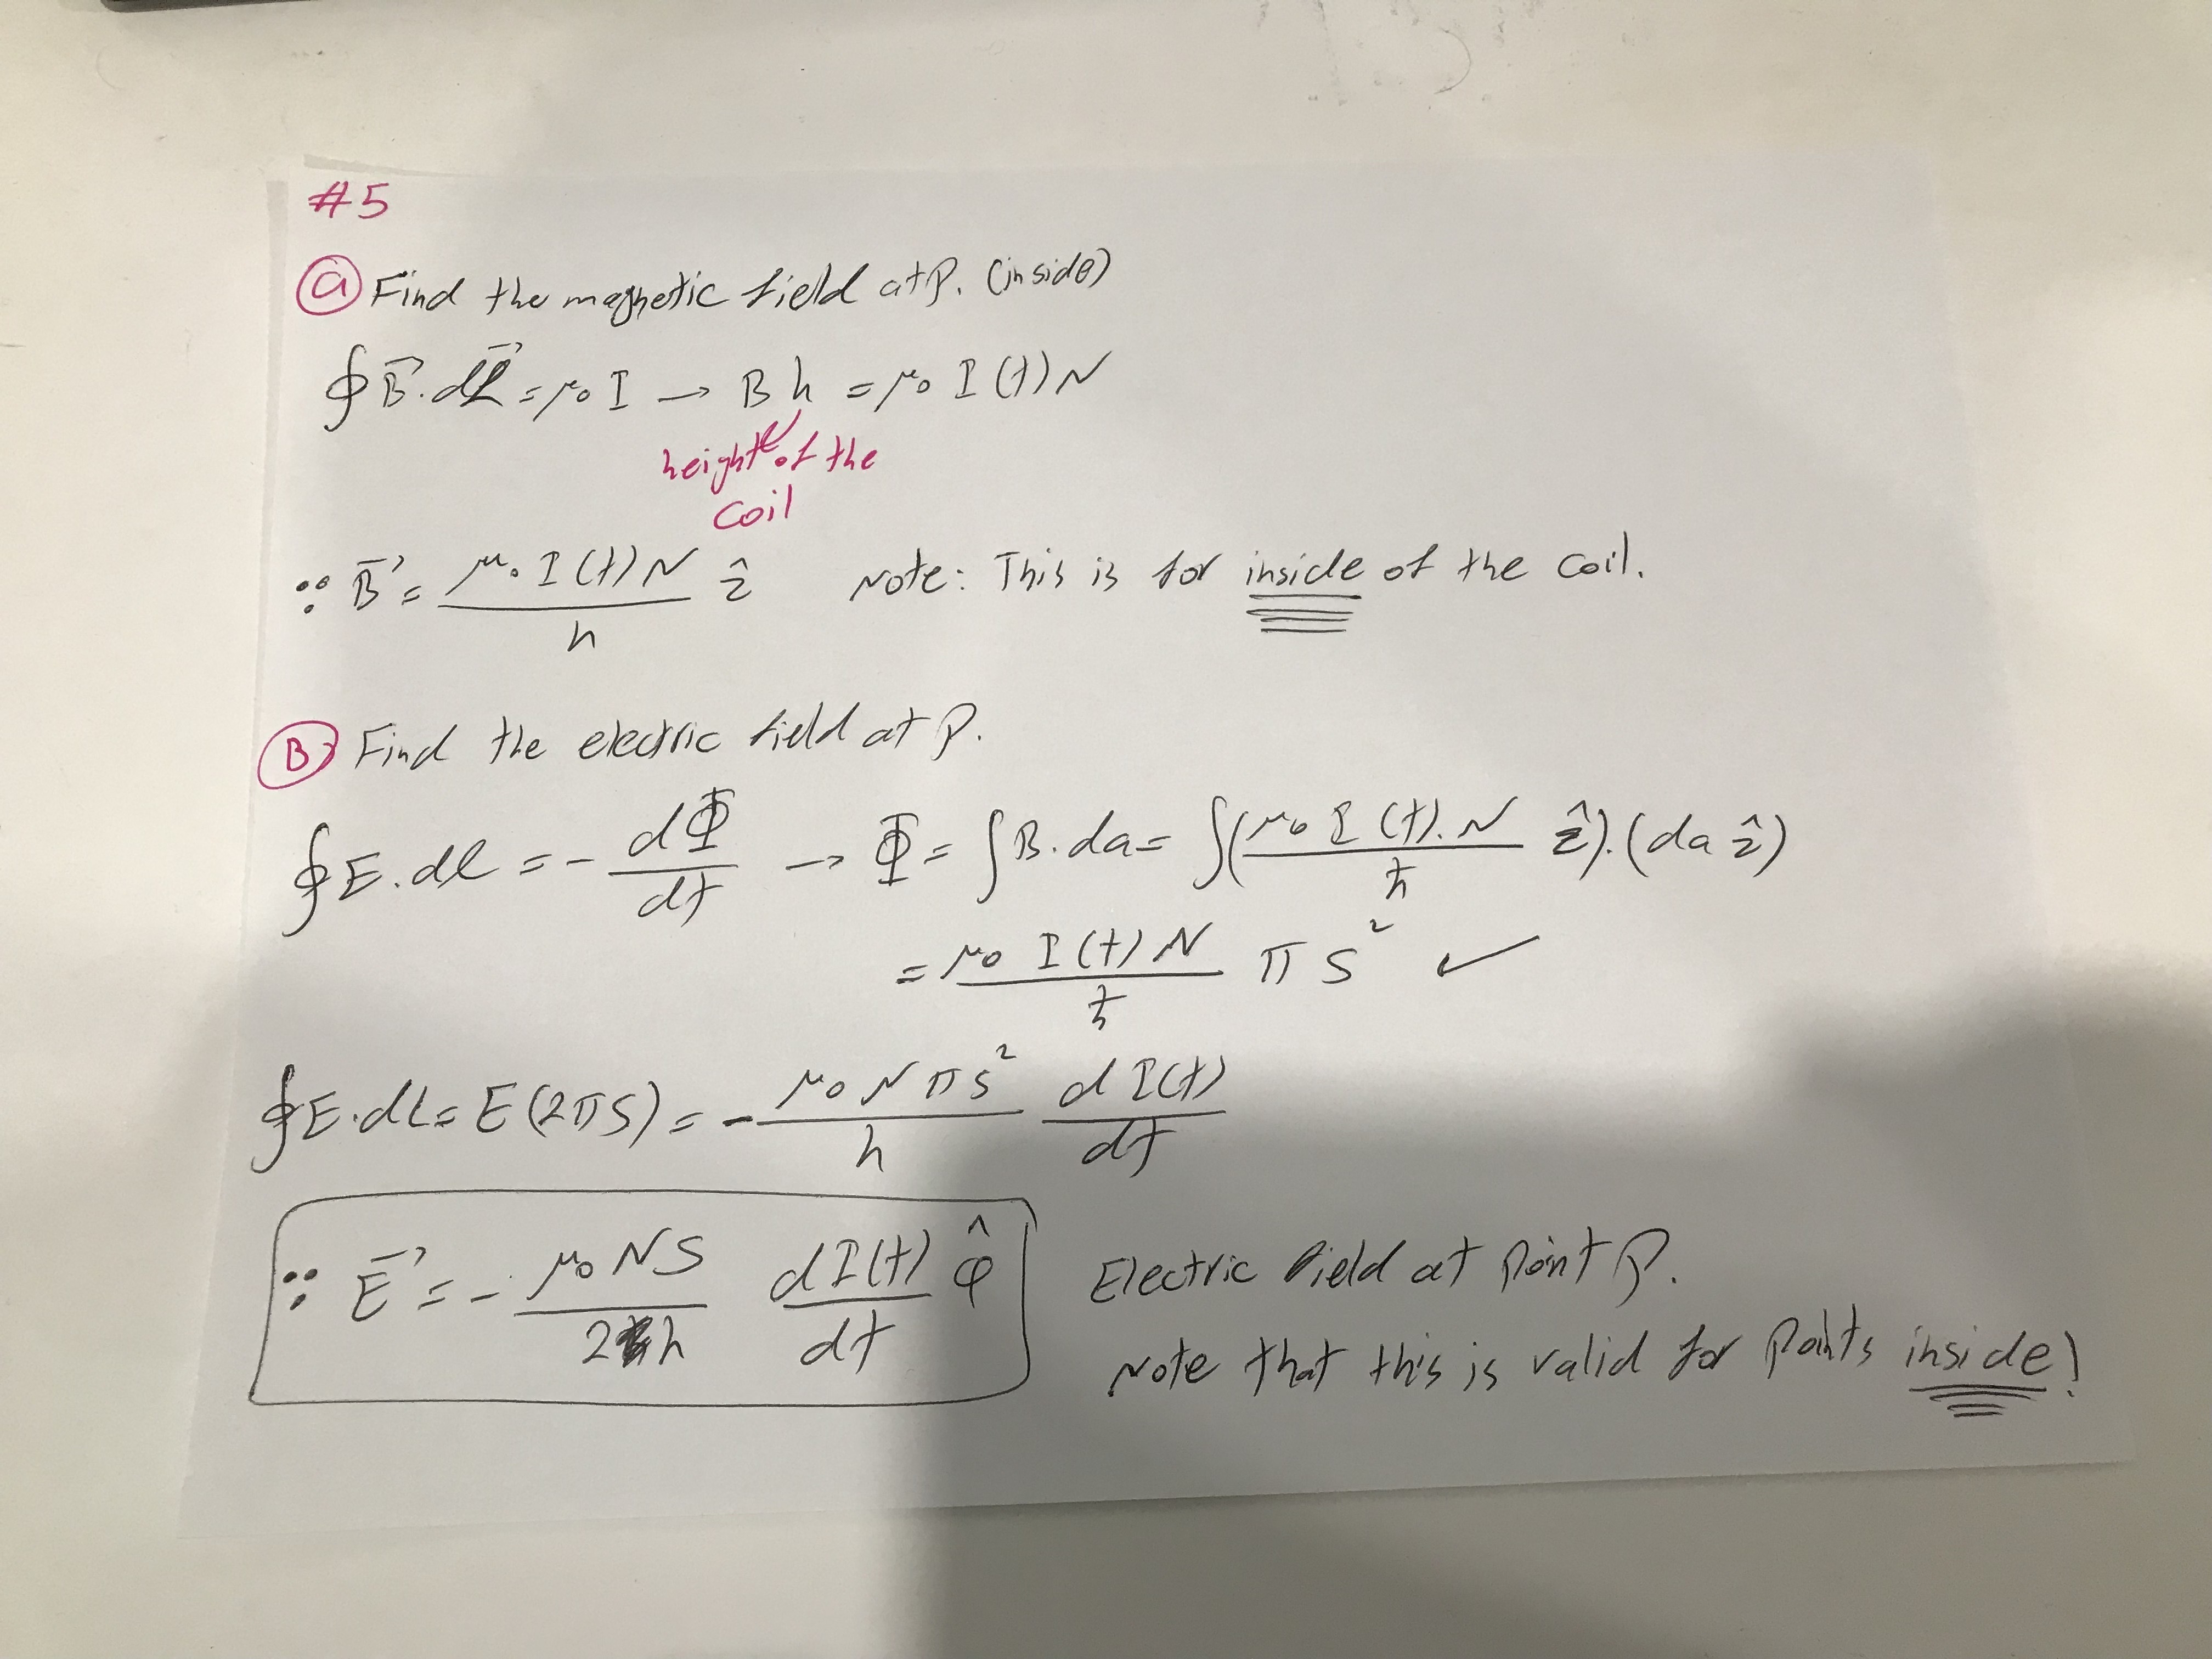 #5
ⓐ Find the magnetic field at P. (inside)
∮B⃗.dL⃗ = μ₀ I → B h = μ₀ I(t) N
height of the
coil
∵ B⃗ = μ₀ I(t) N / h ẑ Note: This is for inside of the coil.
Ⓑ Find the electric field at P.
∮E.dl = - dΦ/dt → Φ = ∫B.da = ∫(μ₀ I(t).N / h ẑ).(da ẑ)
= μ₀ I(t) N / h π s² ✓
∮E.dl = E(2πs) = - μ₀ N π s² / h dI(t)/dt
∵ E⃗ = - μ₀ N s / 2h dI(t)/dt φ̂ Electric field at point P.
Note that this is valid for points inside!